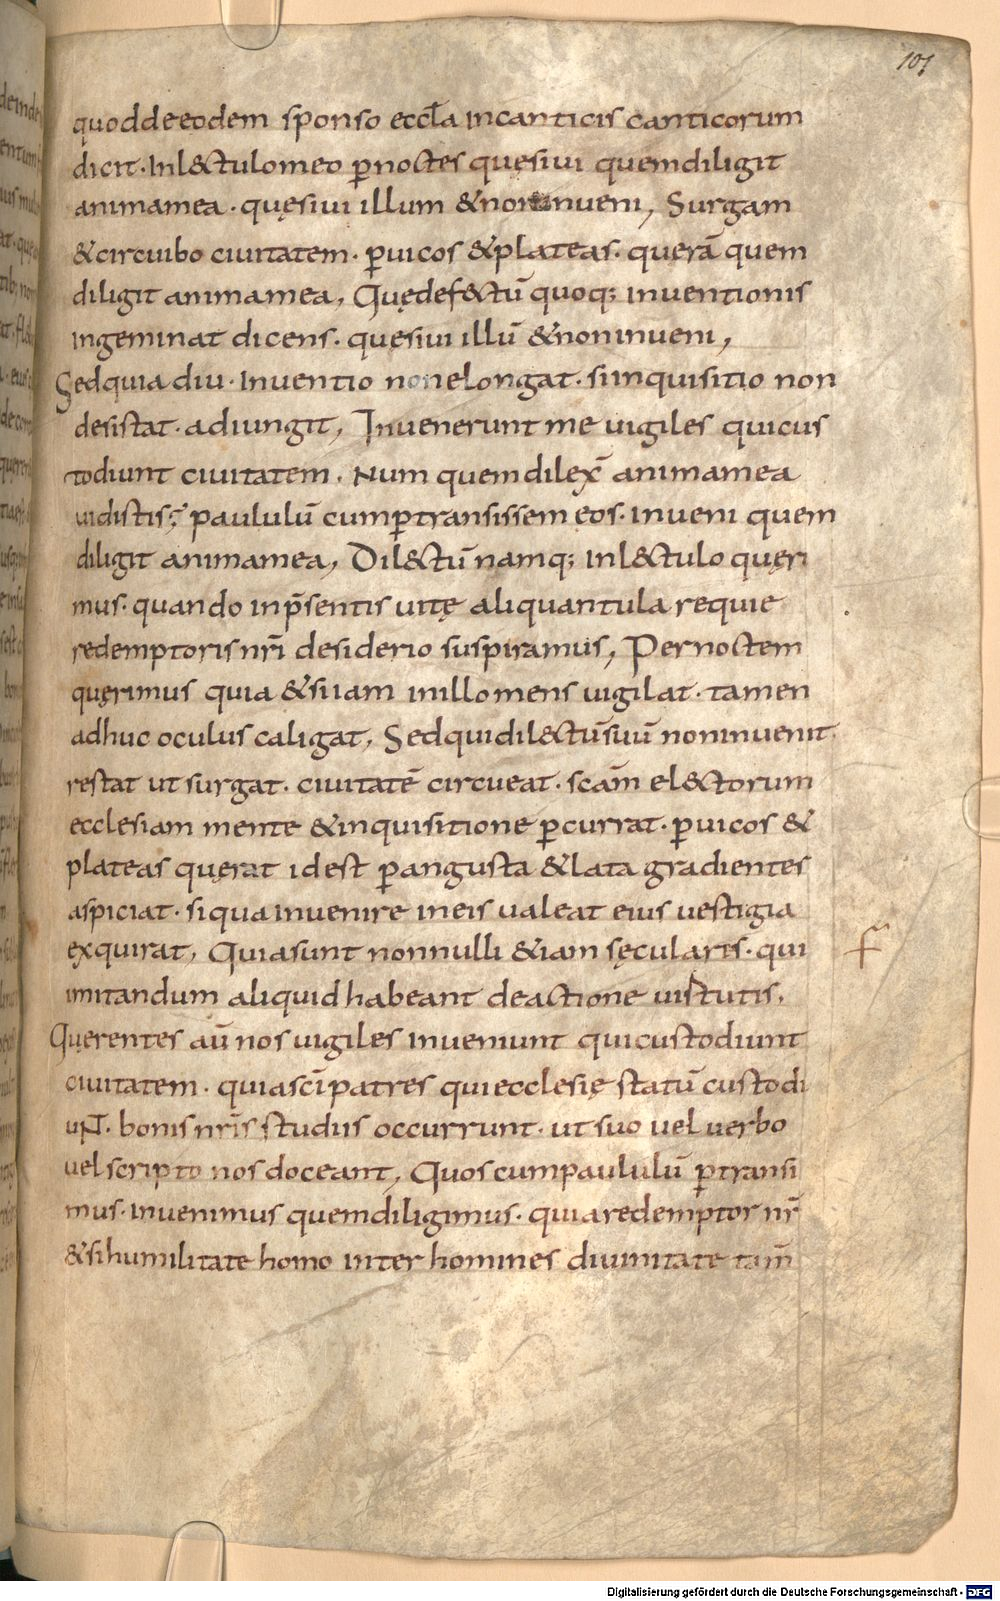 101
quod de eodem sponso eccła in canticis canticorum
dicit · In l&tulo meo p̄ noctes quęsiui quem diligit
anima mea · quęsiui illum & non inueni, Surgam
& circuibo ciuitatem · p̄ uicos & plateas · querā quem
diligit anima mea, Quę defectū quoq; inuentionis
ingeminat dicens · quęsiui illū & non inueni,
Sed quia diu · inuentio non elongat · si inquisitio non
desistat · adiungit, Inuenerunt me uigiles qui cus
todiunt ciuitatem · Num quem dilex̄ anima mea
uidistis; paululū cum p̄transissem eos · inueni quem
diligit anima mea, Dil&tū namq; in l&tulo quęri
mus · quando in p̄sentis uitę aliquantula requie
redemptoris nr̄i desiderio suspiramus, Per noctem
quęrimus quia & si iam in illo mens uigilat · tamen
adhuc oculus caligat, Sed qui dil&tū suū non inuenit ·
restat ut surgat · ciuitatē circueat · sc̄am el&torum
ecclesiam mente & inquisitione p̄currat · p̄ uicos &
plateas quęrat id est p̄ angusta & lata gradientes
aspiciat · si qua inuenire in eis ualeat eius uestigia
exquirat, Quia sunt nonnulli &iam sęculares · qui
imitandum aliquid habeant de actione uirtutis,
Querentes aū nos uigiles inueniunt qui custodiunt
ciuitatem · quia sc̄i patres qui ecclesię statū custodi
unt · bonis nr̄is studiis occurrunt · ut suo uel uerbo
uel scripto nos doceant, Quos cum paululū p̄transi
mus · inuenimus quem diligimus · quia redemptor nr̄
& si humilitate homo inter homines diuinitate tam̄
Digitalisierung gefördert durch die Deutsche Forschungsgemeinschaft - DFG